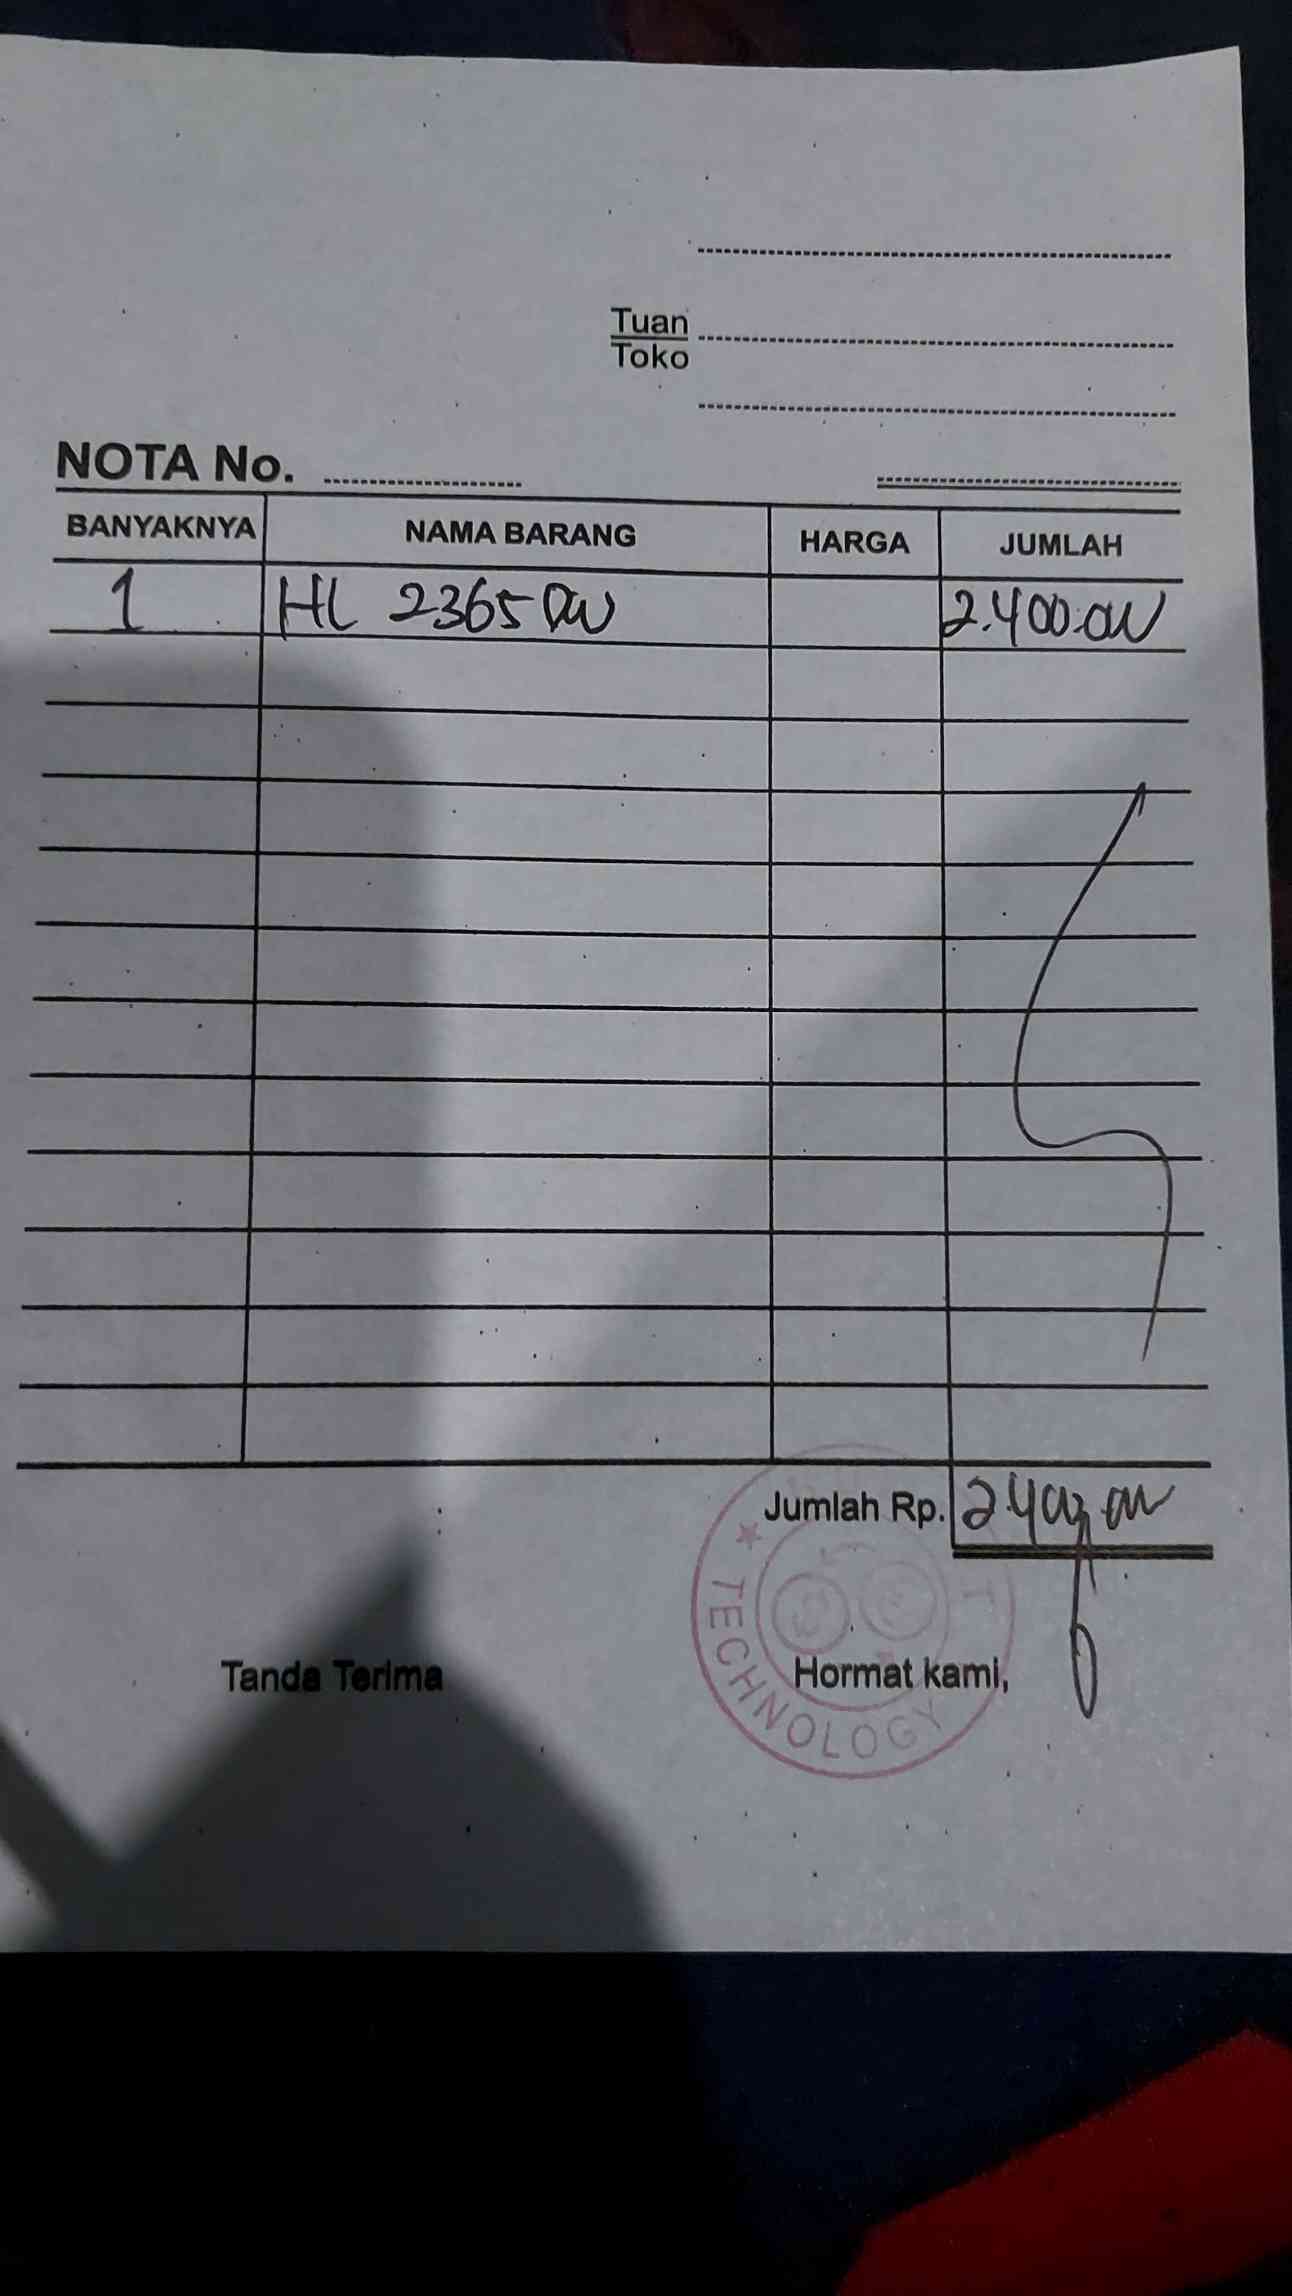 Tuan
Toko
NOTA No.
BANYAKNYA NAMA BARANG HARGA JUMLAH
1 HL 2365 DW 2.400.000
Jumlah Rp. 2.400.000
Tanda Terima Hormat kami,
TECHNOLOGY